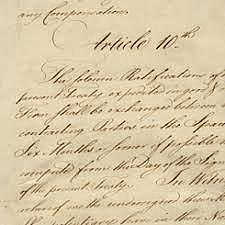 any Compensation.
Article 10th
The solemn Ratifications of
present Treaty expedited in good &
Form shall be exchanged between
contracting Parties in the Space
Six Months or sooner if possible to
computed from the Day of the Sig
of the present Treaty. In Witne
whereof we the undersigned
in their Na